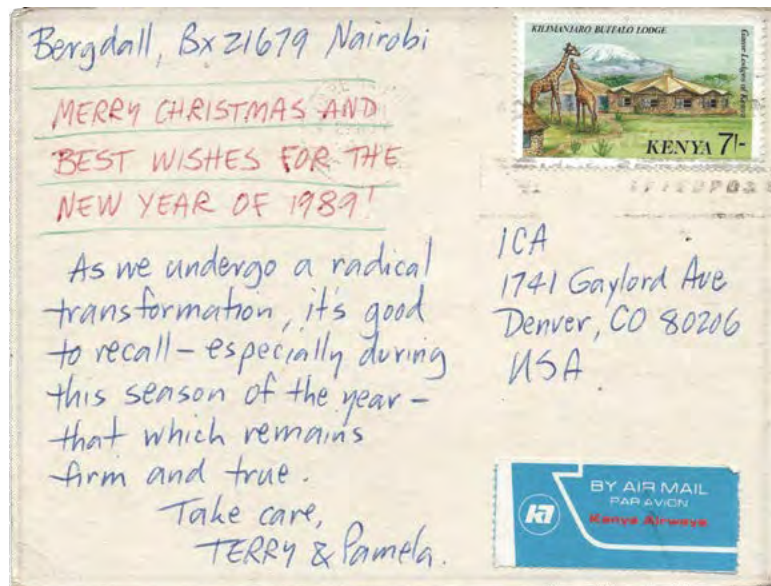 Bergdall, Bx 21679 Nairobi
MERRY CHRISTMAS AND
BEST WISHES FOR THE
NEW YEAR OF 1989!
As we undergo a radical
transformation, it's good
to recall - especially during
this season of the year -
that which remains
firm and true.
Take care,
TERRY & Pamela.
KILIMANJARO BUFFALO LODGE
Game Lodges of Kenya
KENYA 7/-
ICA
1741 Gaylord Ave
Denver, CO 80206
USA
BY AIR MAIL
PAR AVION
Kenya Airways